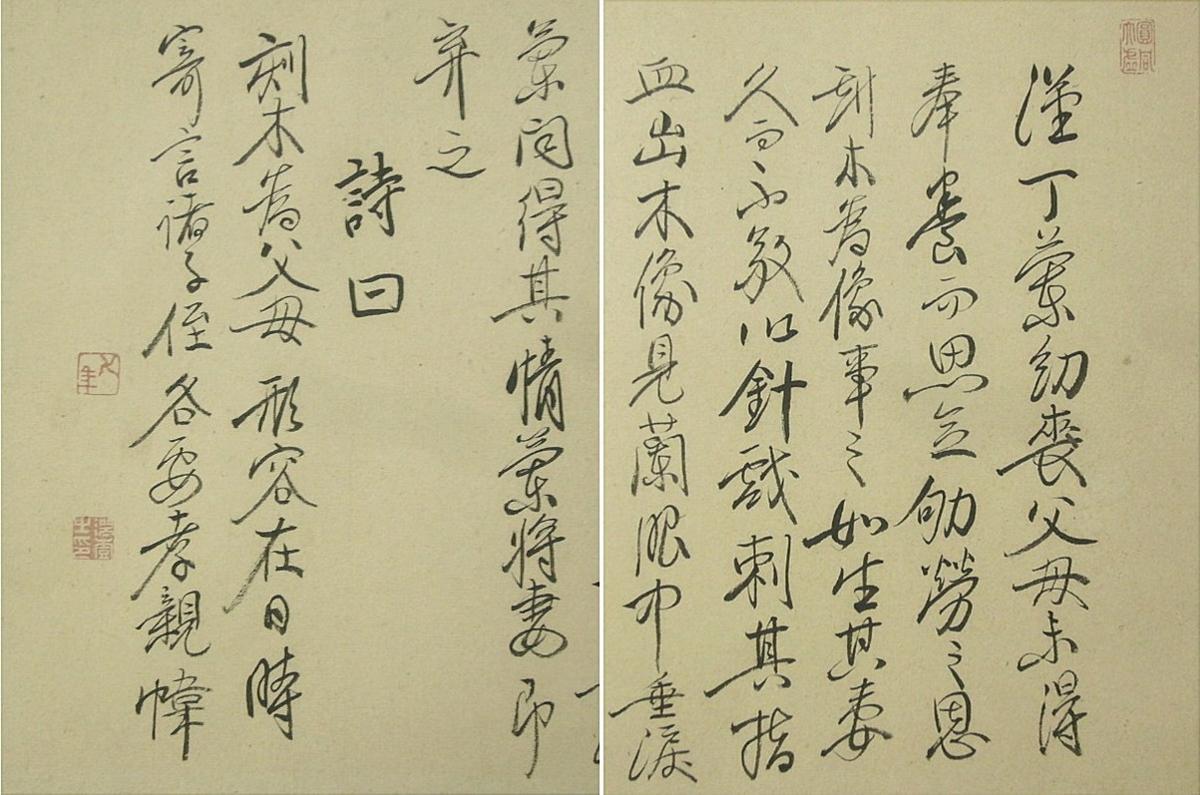 漢丁蘭幼喪父母未得
奉養而思念劬勞之恩
刻木為像事之如生其妻
久而不敬以針戲刺其指
血出木像見蘭眼中垂淚
蘭問得其情蘭將妻即
弃之
詩曰
刻木為父母 形容在日時
寄言諸子侄 各要孝親幃